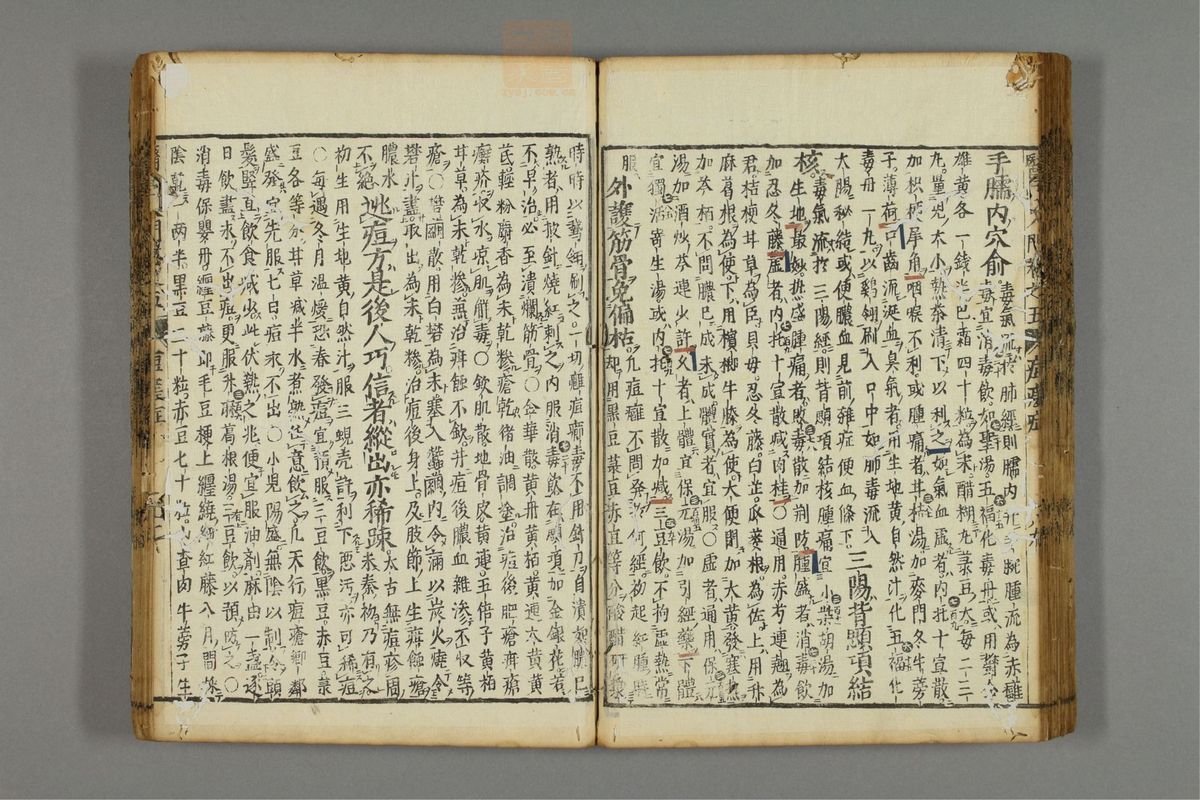 手臑内穴俞毒氣流於肺經則臑内九手腕腫流為赤癰
毒宜消毒飲如聖湯五福化毒丹或用蟬
雄黄各一錢半巴霜四十粒為末醋糊丸菉豆大每二三
丸量兒大小熱茶清下以利之如氣血虛者内托十宣散
加枳梗犀角咽喉不利或腫痛者甘桔湯加麥門冬牛蒡
子薄荷口齒流涎血臭氣者用生地黄自然汁化五福化
毒丹一丸以鷄翎刷入口中如肺毒流入
大腸秘結或便膿血見前雜症便血條下三陽背顋項結
核毒氣流於三陽經則背顋項結核腫痛宜小柴胡湯加
生地最妙熱盛腫痛者敗毒散加荆防腫盛者消毒飲
加忍冬藤虛者内托十宣散減肉桂〇通用赤芍連翹為
君桔梗甘草為臣貝母忍冬藤白芷瓜蔞根為佐上用升
麻葛根為使下用檳榔牛膝為使大便閉加大黄發寒熱
加芩栢不問膿已成未成體實者宜服〇虛者通用保元
湯加酒炒芩連少許久者上體宜保元湯加引經藥下體
宜獨活寄生湯或内托十宣散加減三豆飲不拘虛熱常
服
外護筋骨免偏枯凡痘癰不問發於何經初起紅腫時
却用黒豆菉豆赤豆等分酸醋研漿
時時以鵞翎刷之一切癰疽癤毒不用鍼刀自潰如膿已
熟者用軟針燒紅刺之内服消毒飲在頭項加金銀花若
不早治必至潰爛筋骨〇金華散黄丹黄栢黄連大黄黄
芪輕粉麝香為末乾糝瘡乾猪油調塗治痘後肥瘡疳瘡
癬疥收水凉肌解毒〇斂肌散地骨皮黄連五倍子黄栢
甘草為末乾摻並治疳蝕不斂并痘後膿血雜滲不收等
瘡〇礬繭散用白礬為末塞入蠶繭内令滿以炭火燒令
礬汁盡取出為末乾糝治痘瘡後身上及肢節上生疳蝕瘡
膿水
不絶
逃痘方是後人巧信者縱出亦稀踈太古無痘疹周
末秦初乃有之
初生用生地黄自然汁服三蜆壳許利下惡汚亦可稀痘
〇每遇冬月温煖恐春發痘宜預服三豆飲黒豆赤豆菉
豆各等分甘草減半水煮熟任意飲之凡天行痘瘡鄉鄰
盛發宜先服七日痘永不出〇小兒陽盛無陰以制頭
髮竪立飲食減少此伏熱之兆便宜服油劑麻油一盞逐
日飲盡永不出痘更服升麻葛根湯三豆飲以預防之〇
消毒保嬰丹纏豆藤即毛豆梗上纒繞細紅藤八月間採
陰乾一兩半黒豆三十粒赤豆七十粒山查肉牛蒡子生